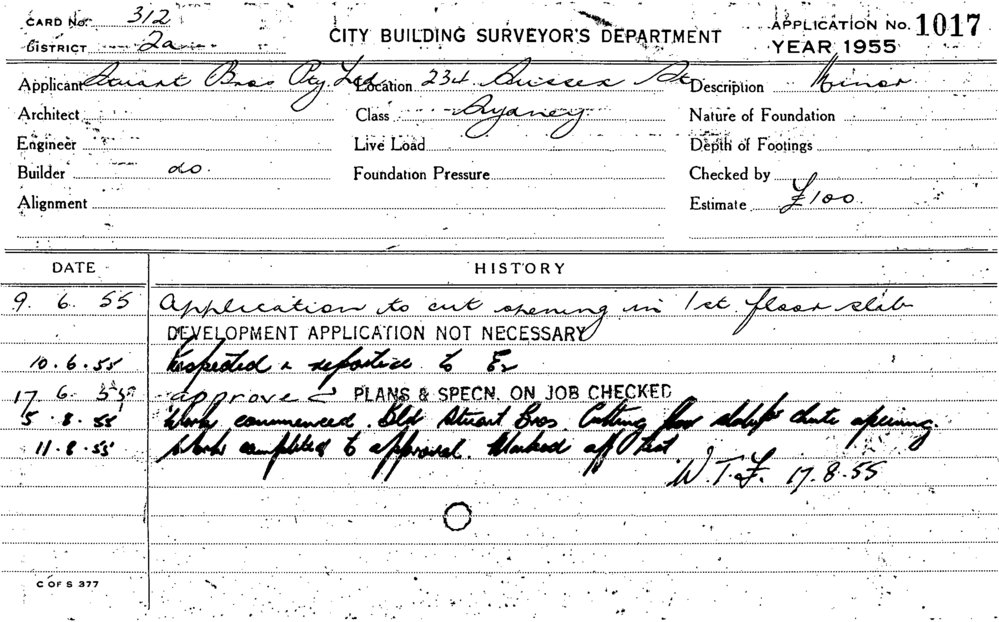 CARD No. 312
DISTRICT 2a
CITY BUILDING SURVEYOR'S DEPARTMENT
APPLICATION No. 1017
YEAR 1955
Applicant Stuart Bros Pty. Ltd Location 234 Sussex St Description Minor
Architect Class Sydney Nature of Foundation
Engineer Live Load Depth of Footings
Builder do. Foundation Pressure Checked by
Alignment Estimate £100
DATE HISTORY
9. 6. 55 Application to cut opening in 1st floor slab
DEVELOPMENT APPLICATION NOT NECESSARY
10. 6. 55 Inspected & reported to
17 6. 55 approved PLANS & SPECN. ON JOB CHECKED
5 . 8. 55 Work commenced. Bldr Stuart Bros. Cutting floor slab for chute opening.
11. 8. 55 Work completed to approval. Marked off list
W. T. F. 17. 8. 55
C OF S 377